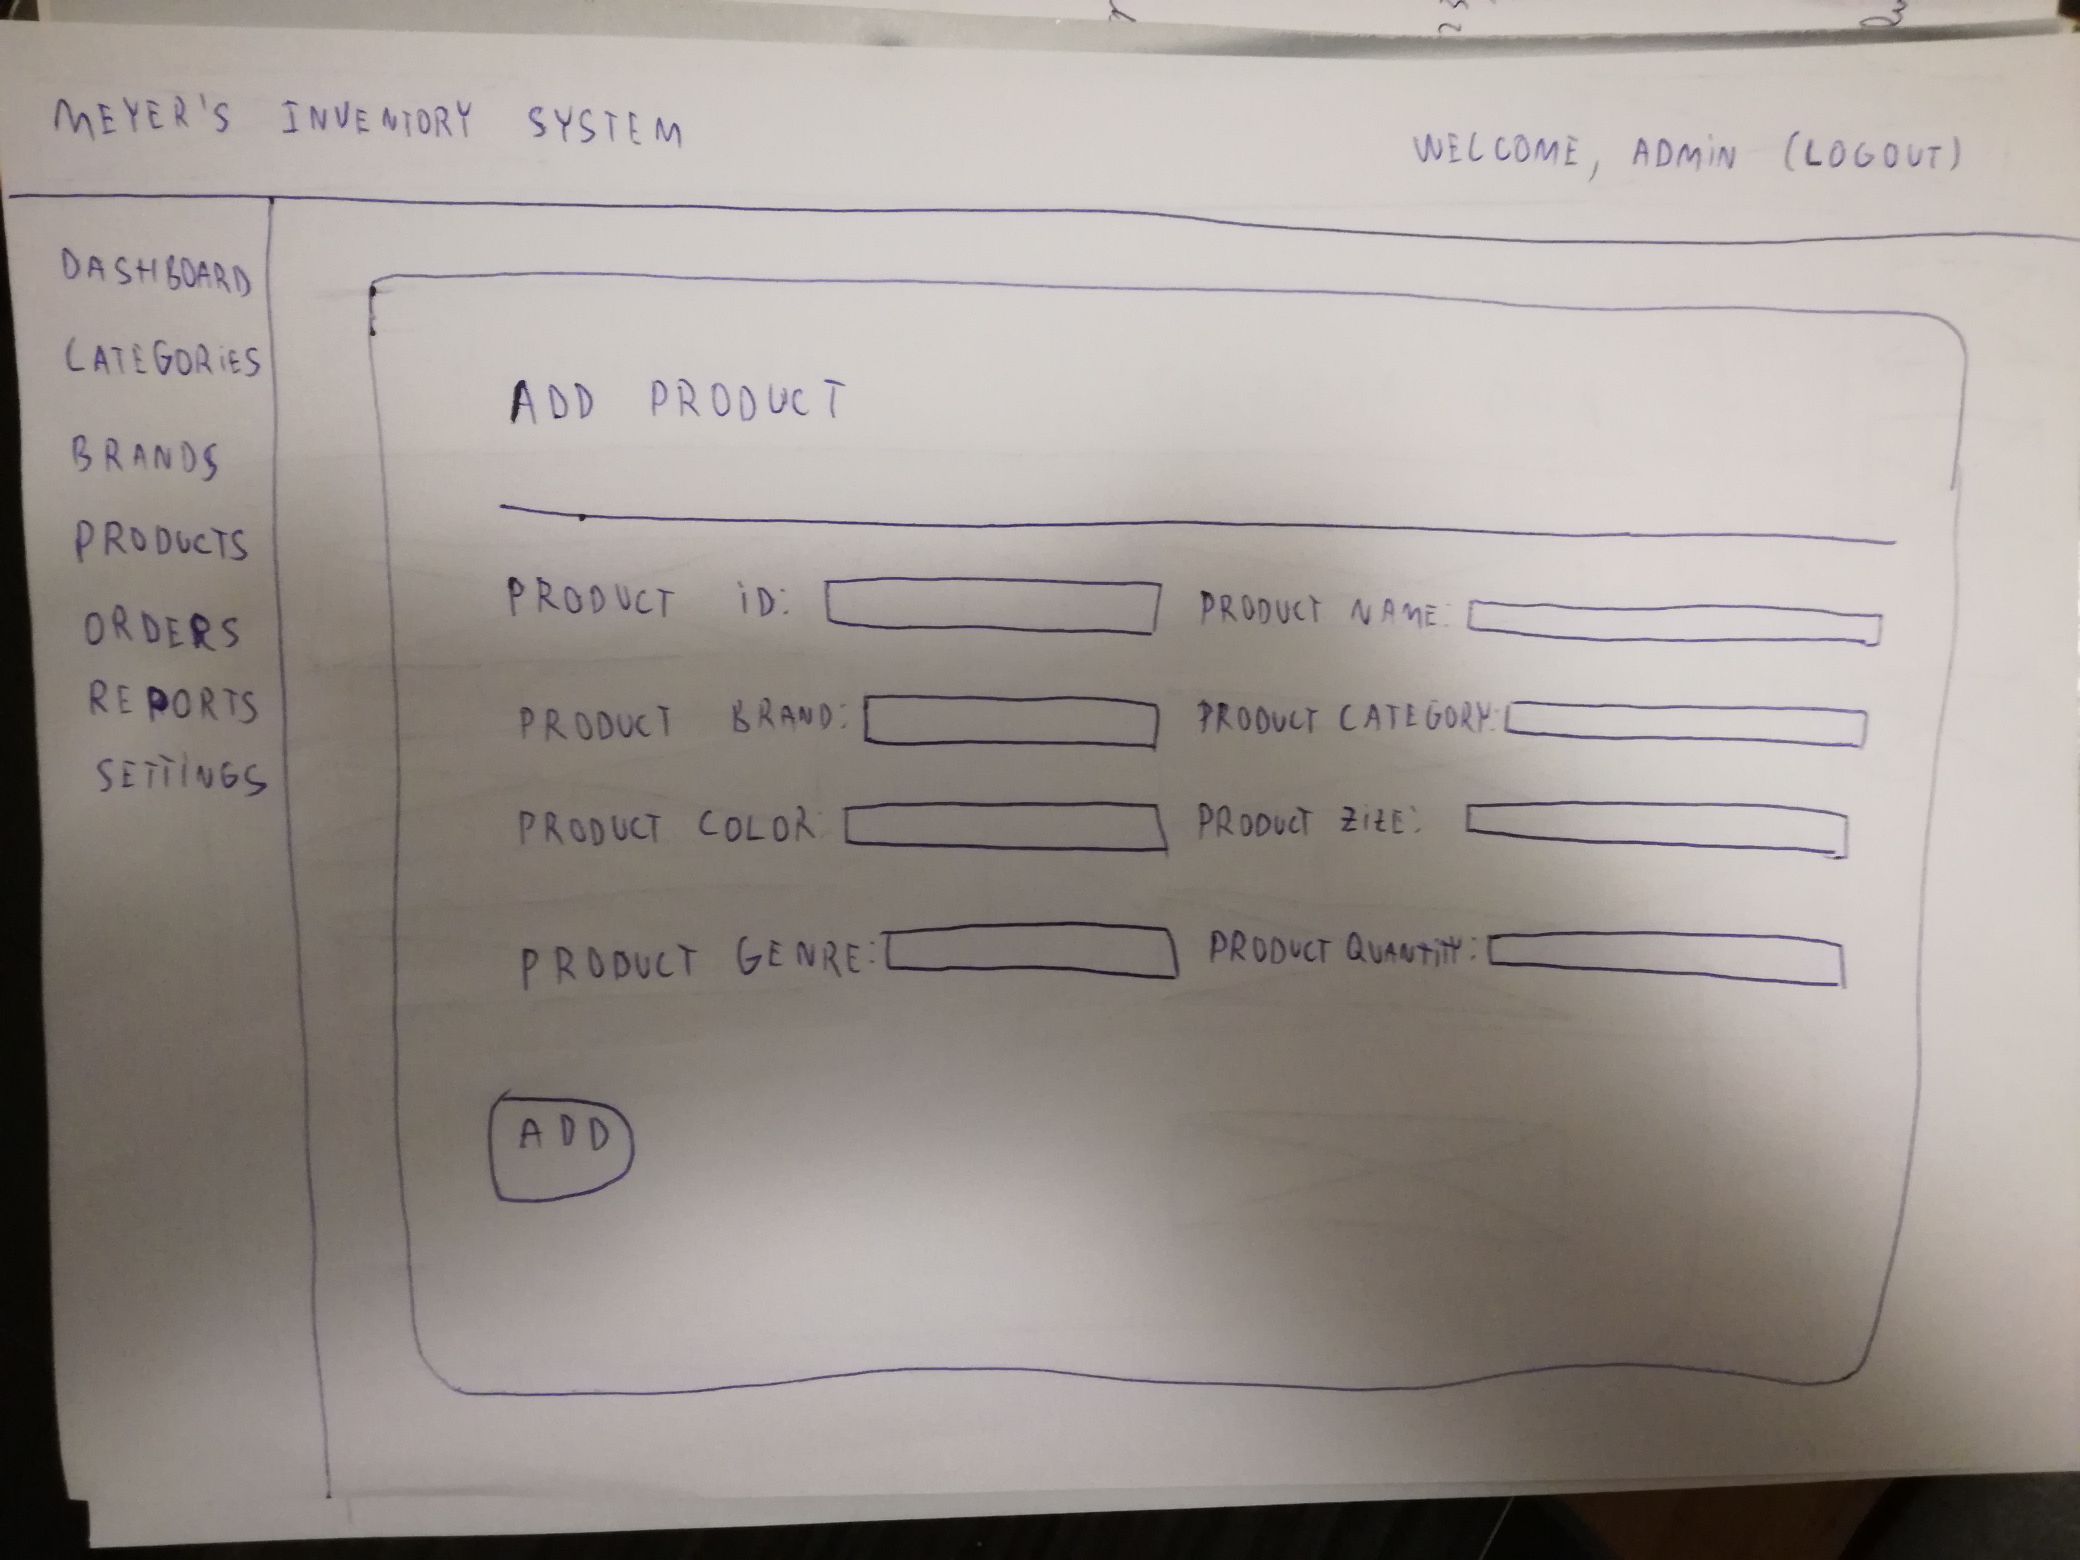 MEYER'S INVENTORY SYSTEM
WELCOME, ADMIN (LOGOUT)
DASHBOARD
CATEGORIES
BRANDS
PRODUCTS
ORDERS
REPORTS
SETTINGS
ADD PRODUCT
PRODUCT ID: PRODUCT NAME:
PRODUCT BRAND: PRODUCT CATEGORY:
PRODUCT COLOR: PRODUCT ZIZE:
PRODUCT GENRE: PRODUCT QUANTITY:
ADD